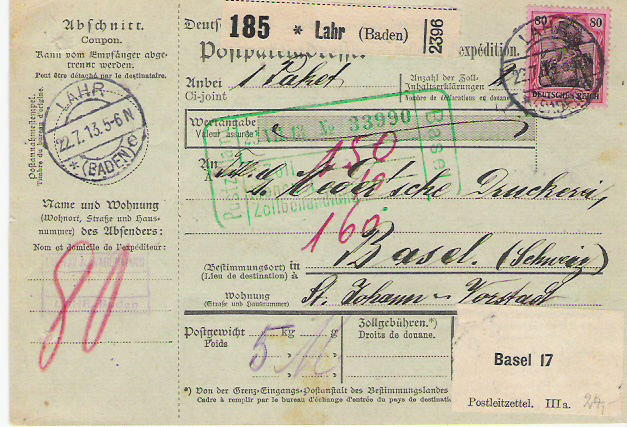 Abschnitt.
Coupon.
Kann vom Empfänger abge-
trennt werden.
Peut être détaché par le destinataire.
Postannahmestempel.
Timbre du bureau d'origine.
LAHR
22.7.13.5-6N
*(BADEN)
Name und Wohnung
(Wohnort, Straße und Haus-
nummer) des Absenders:
Nom et domicile de l'expéditeur:
80
Deuts
185 * Lahr (Baden)
2396
expédition.
80 80
DEUTSCHES REICH
Anbei 1 Paket
Ci-joint
Anzahl der Zoll-
Inhaltserklärungen
Nombre de déclarations en douane
Wertangabe
Valeur assurée
No 33990
Basel
An
Meder'sche Druckerei,
150
10
160
(Bestimmungsort) in Basel. (Schweiz)
(Lieu de destination) à
Wohnung St. Johann - Vorstadt
(Straße und Hausnummer)
Postgewicht kg g
Poids
5
Zollgebühren.*)
Droits de douane.
Basel 17
Postleitzettel. IIIa. 24,-
*) Von der Grenz-Eingangs-Postanstalt des Bestimmungslandes
Cadre à remplir par le bureau d'échange d'entrée du pays de destination